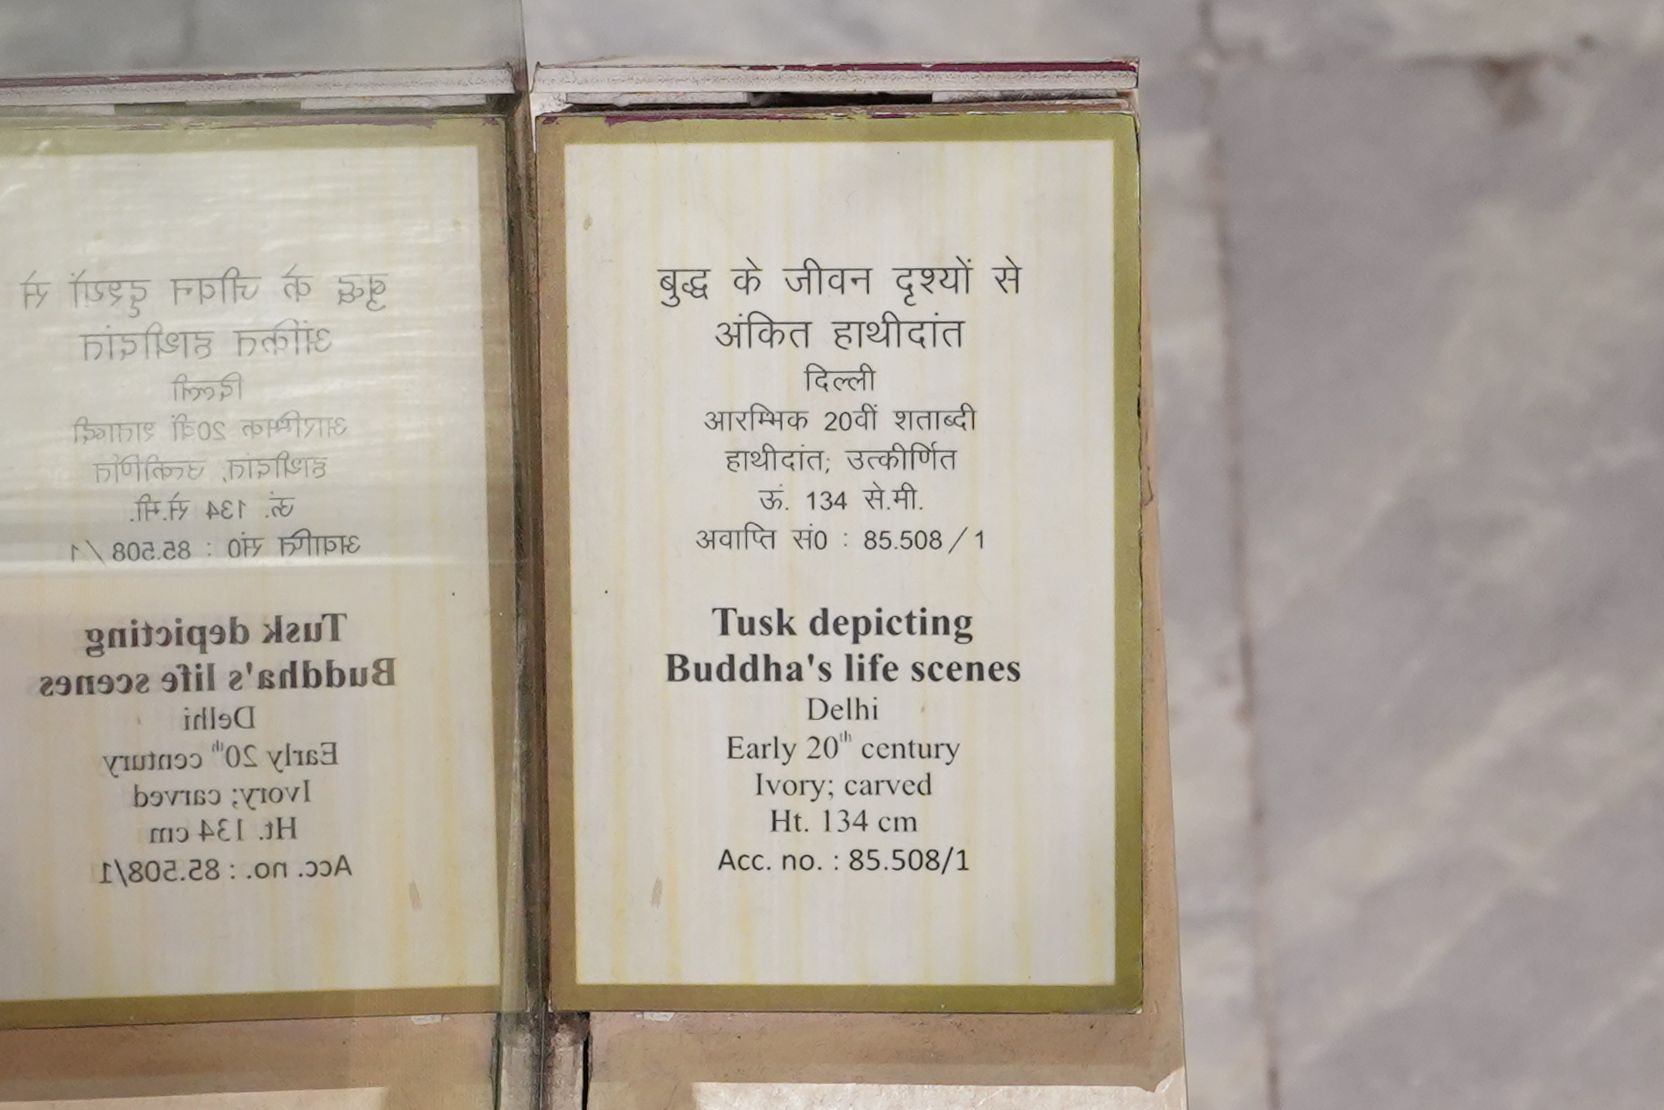 बुद्ध के जीवन दृश्यों से
अंकित हाथीदांत
दिल्ली
आरम्भिक 20वीं शताब्दी
हाथीदांत; उत्कीर्णित
ऊं. 134 से.मी.
अवाप्ति सं0 : 85.508/1
Tusk depicting
Buddha's life scenes
Delhi
Early 20th century
Ivory; carved
Ht. 134 cm
Acc. no. : 85.508/1